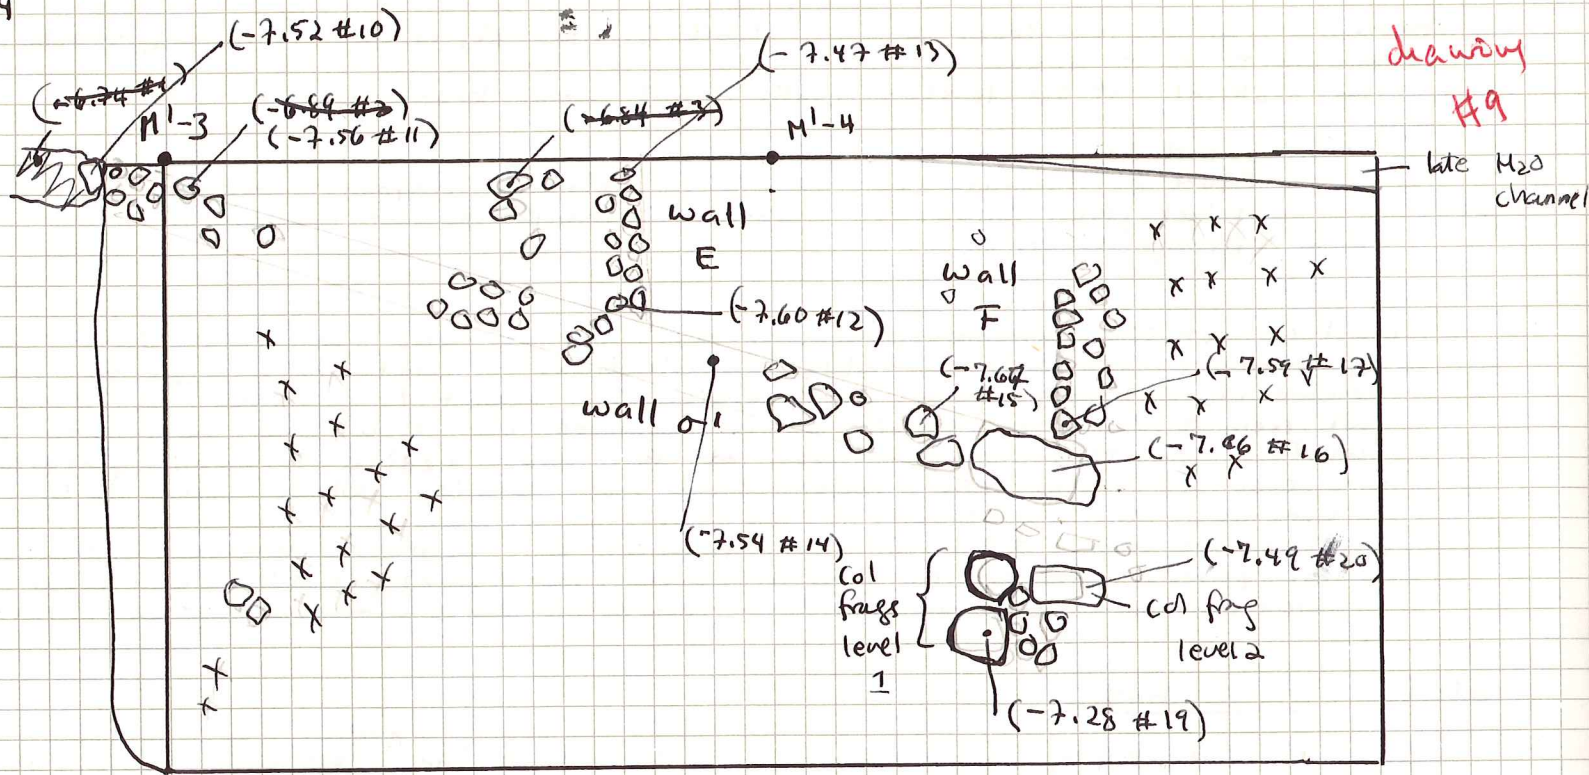 (-7.52 #10)
(-7.47 #13)
drawing
#9
(-6.74 #1)
M'-3
(-6.89 #2)
(-7.56 #11)
(-6.84 #3)
M'-4
late H2O
channel
wall
E
wall
F
(-7.60 #12)
#15)
(-7.59 #17)
wall
(-7.54 #14)
#16)
col
frags
level
1
(-7.49 #20)
col frag
level 2
(-7.28 #19)